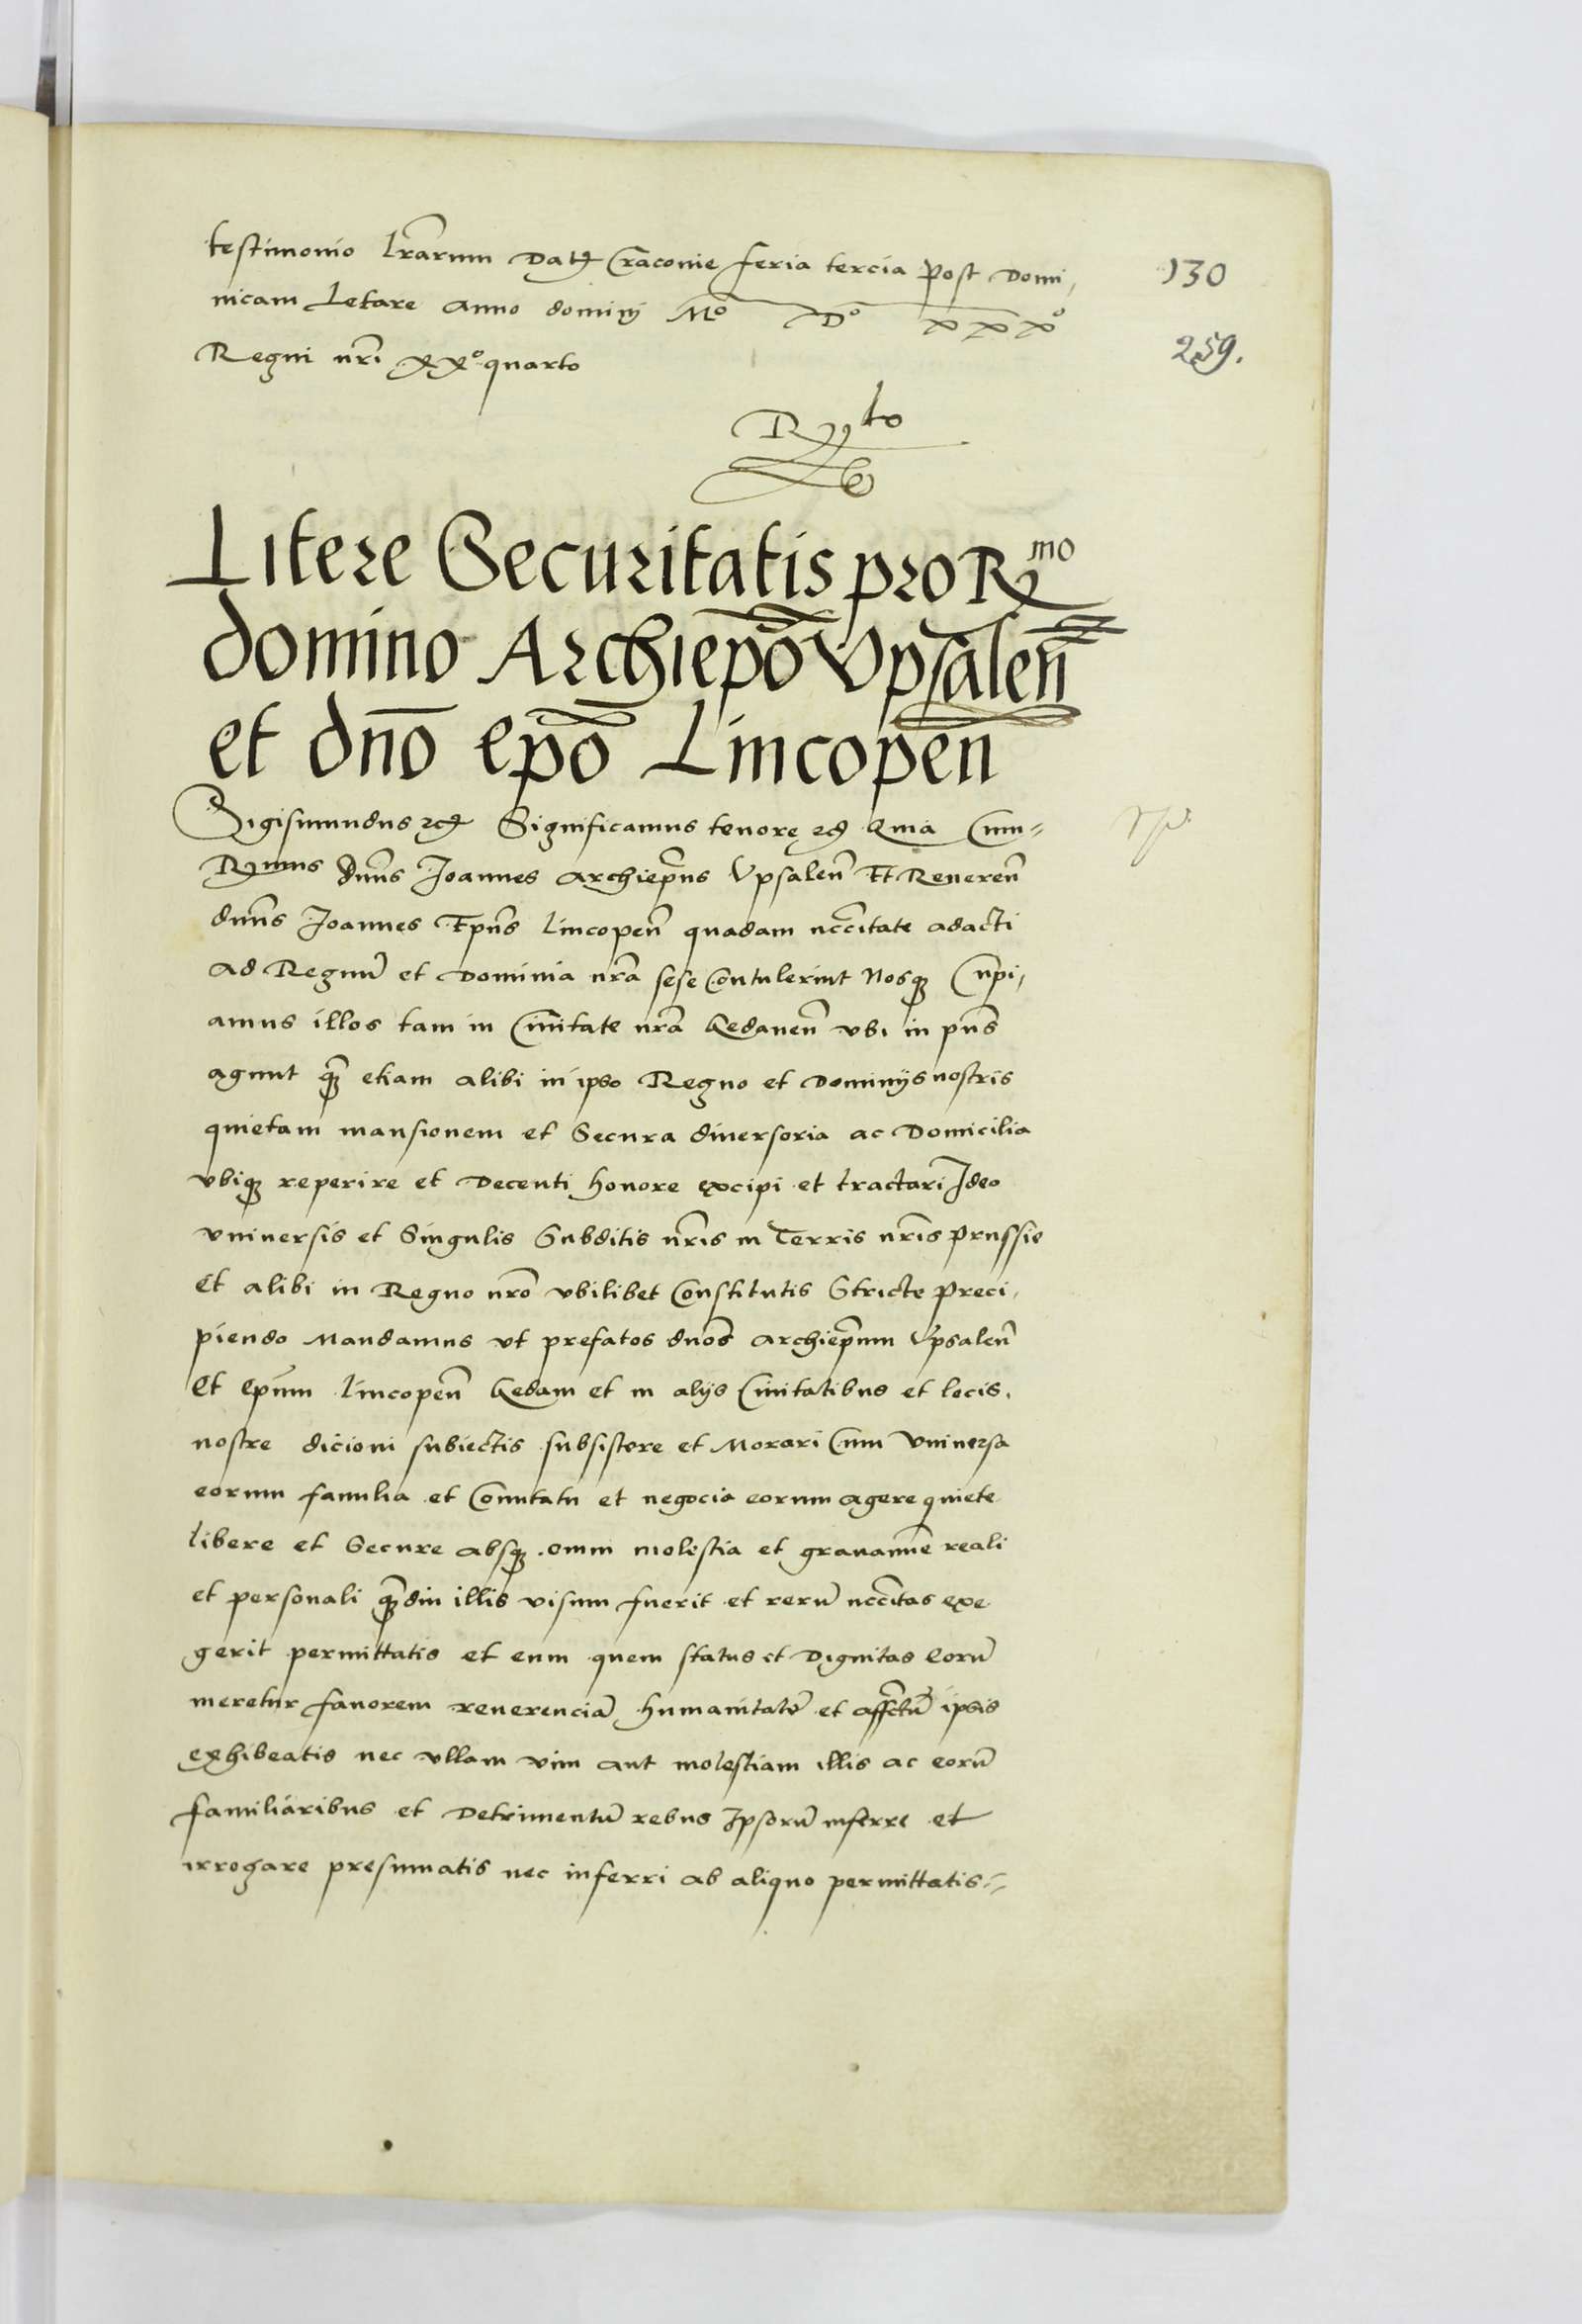 testimonio lrarum Dat Cracouie feria tercia post Domi,
130
nicam Letare Anno dominj Mº Dº xxxº
259.
Regni nri xxº quarto
Rtº
Litere Securitatis pro Rmo
domino Archiepo Upsalen
et dno epo Lincopen
Sigismundus etc Significamus tenore etc Quia Cum=
Rmus dnus Joannes Archiepus Vpsalen Et Reueren
dnus Joannes Epus Lincopen quadam nccitate adacti
ad Regnu et Dominia nra sese Contulerint Nosq Cupi,
amus illos tam in Ciuitate nra Gedanen vbi in pns
agunt q etiam alibi in ipso Regno et Dominijs nostris
quietam mansionem et Secura diuersoria ac Domicilia
vbiq reperire et Decenti honore excipi et tractari Ideo
vniuersis et Singulis Subditis nris in Terris nris Prussie
Et alibi in Regno nro vbilibet Constitutis Stricte preci,
piendo Mandamus vt prefatos dnos Archiepum Vpsalen
Et epum Lincopen Gedam et in alijs Ciuitatibus et locis.
nostre dicioni subiectis subsistere et Morari Cum vniuersa
eorum familia et Comitatu et negocia eorum agere quiete
libere et Secure absq omni molestia et grauamine reali
et personali qdiu illis visum fuerit et reru nccitas exe
gerit permittatis et eum quem status et Dignitas Eoru
meretur fauorem reuerencia humanitate et affctu ipsis
exhibeatis nec vllam vim aut molestiam illis ac eoru
familiaribus et Detrimentu rebus Ipsoru inferre et
irrogare presumatis nec inferri ab aliquo permittatis=